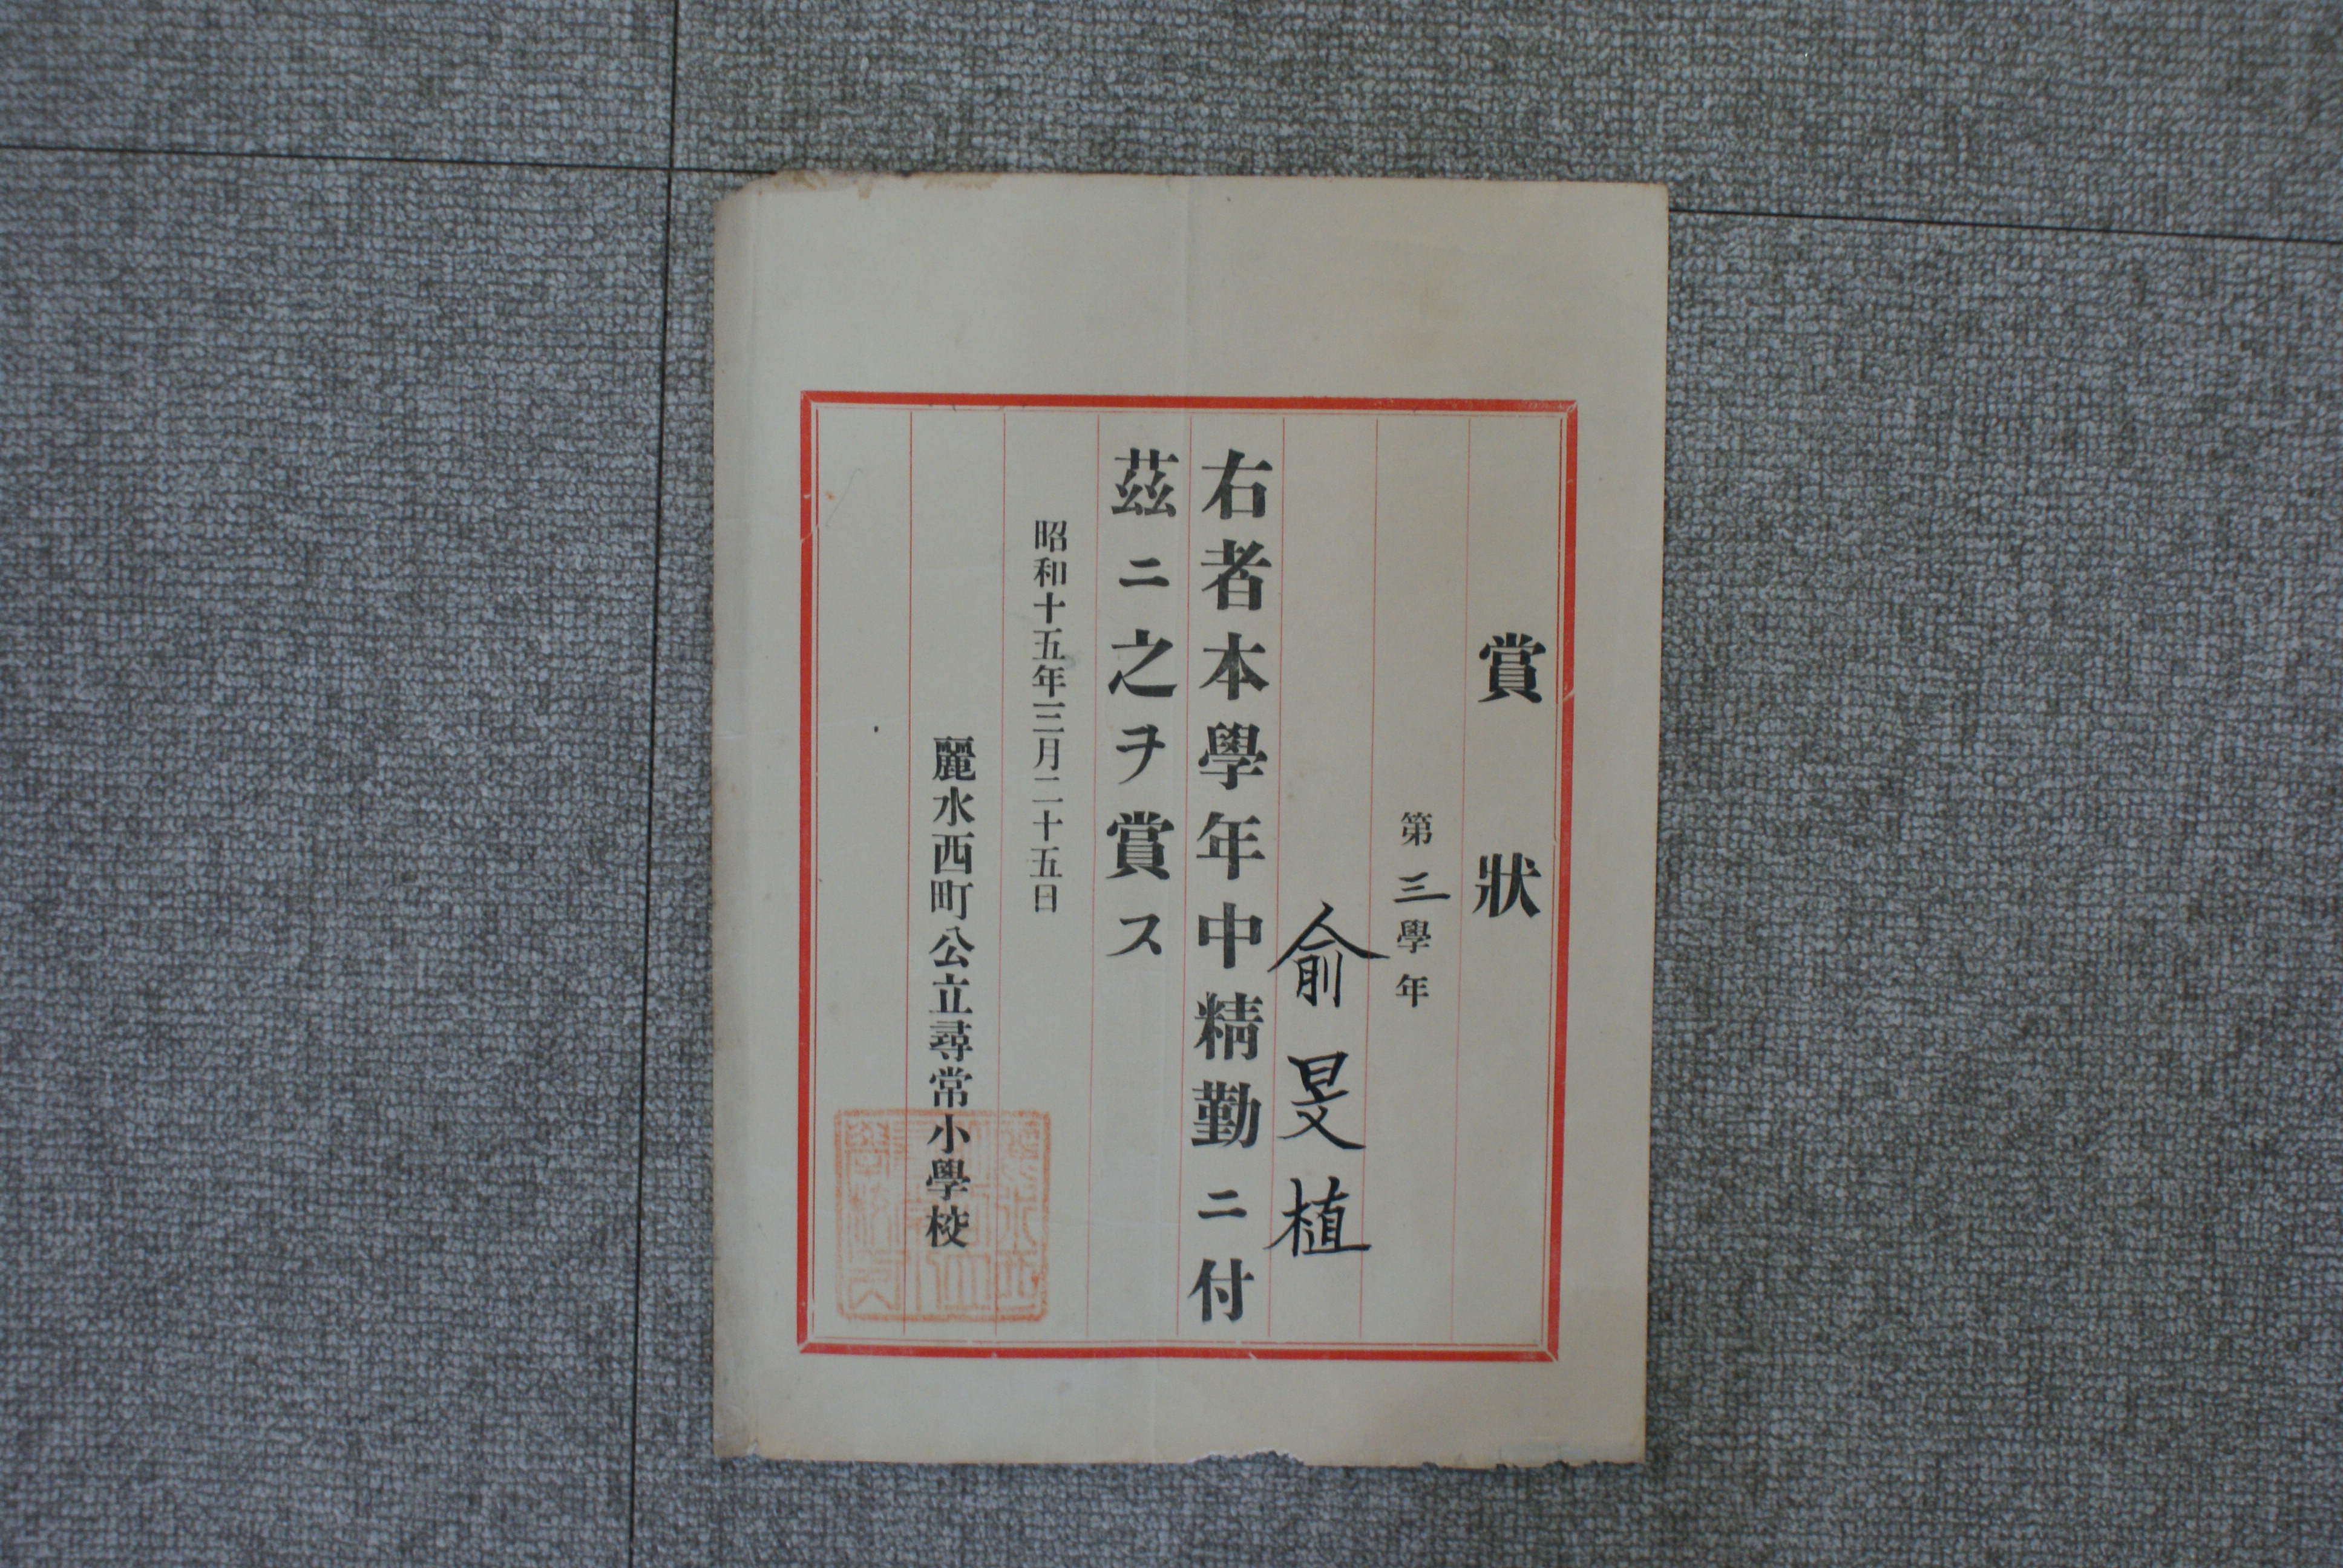 賞狀
第三學年
俞旻植
右者本學年中精勤ニ付
茲ニ之ヲ賞ス
昭和十五年三月二十五日
麗水西町公立尋常小學校